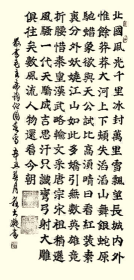 北國風光千里冰封萬里雪飄望長城內外
惟餘莽莽大河上下頓失滔滔山舞銀蛇原
馳蠟象欲與天公試比高須晴日看紅裝素
裹分外妖嬈江山如此多嬌引無數英雄競
折腰惜秦皇漢武略輸文采唐宗宋祖稍遜
風騷一代天驕成吉思汗只識彎弓射大雕
俱往矣數風流人物還看今朝
毛主席詩詞沁園春雪